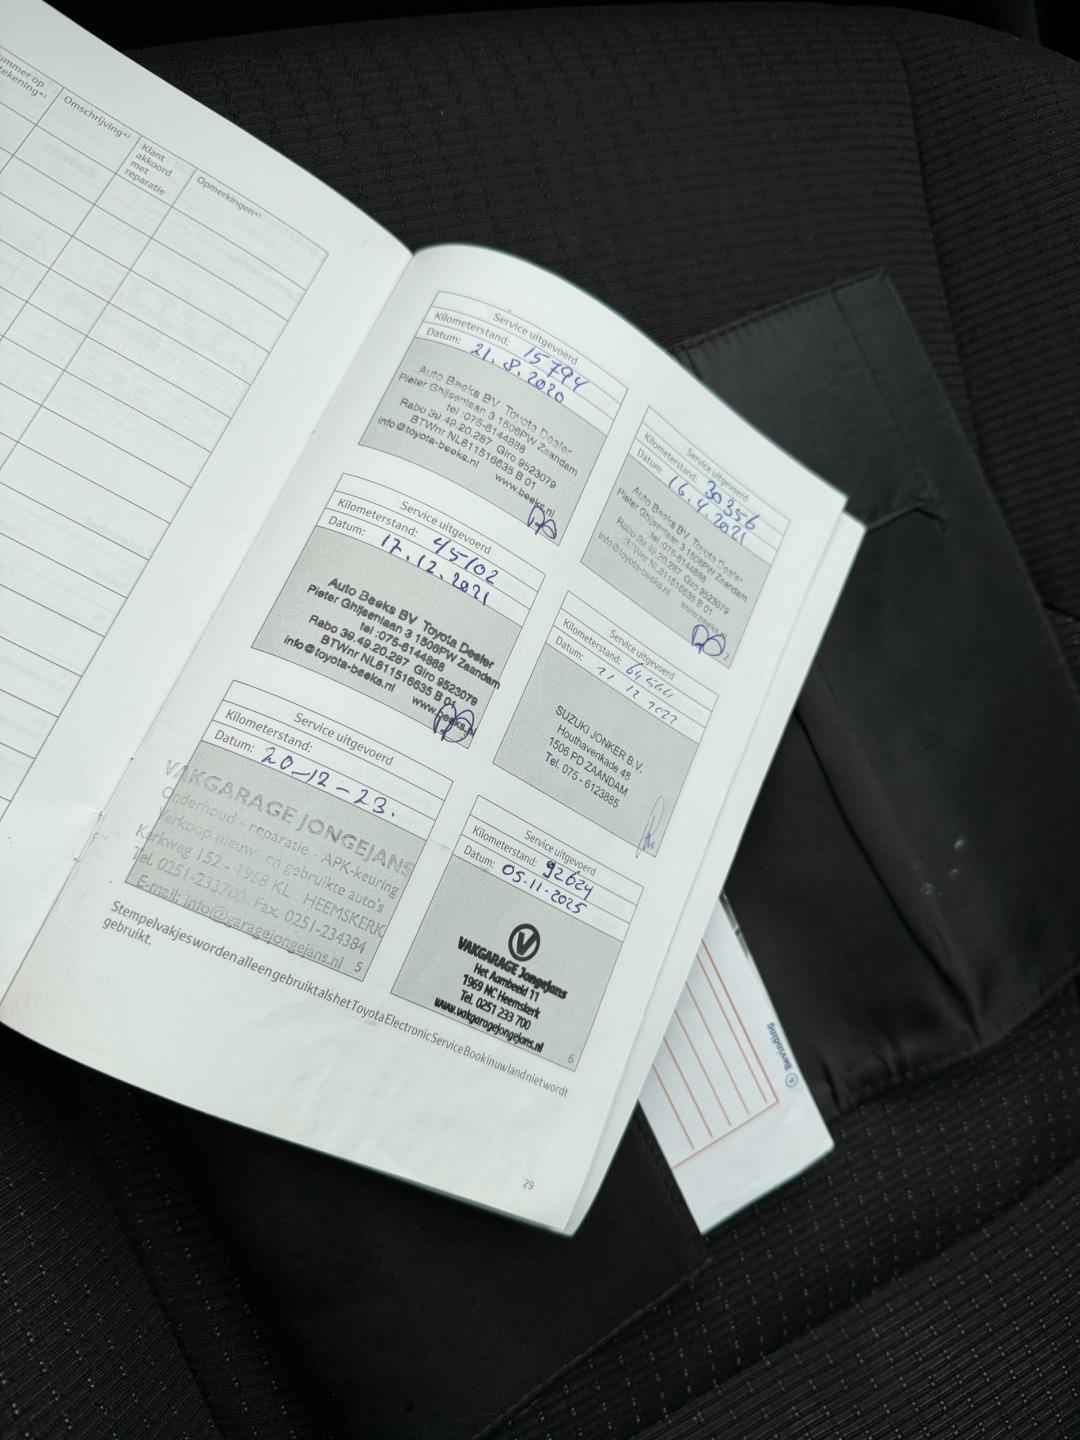 Omschrijving*²
Klant
akkoord
met
reparatie
Opmerkingen*³
Service uitgevoerd
Kilometerstand: 15794
Datum: 21.8.2020
Auto Beeks BV Toyota Dealer
Pieter Ghijsenlaan 3 1506PW Zaandam
tel :075-6144888
Rabo 39.49.20.287 Giro 9523079
BTWnr NL811516635 B 01
info@toyota-beeks.nl www.beeks.nl
Service uitgevoerd
Kilometerstand: 30356
Datum: 16.4.2021
Auto Beeks BV Toyota Dealer
Pieter Ghijsenlaan 3 1506PW Zaandam
tel :075-6144888
Rabo 39.49.20.287 Giro 9523079
BTWnr NL811516635 B 01
info@toyota-beeks.nl www.beeks.nl
2
Service uitgevoerd
Kilometerstand: 45102
Datum: 17.12.2021
Auto Beeks BV Toyota Dealer
Pieter Ghijsenlaan 3 1506PW Zaandam
tel :075-6144888
Rabo 39.49.20.287 Giro 9523079
BTWnr NL811516635 B 01
info@toyota-beeks.nl www.beeks.nl
Service uitgevoerd
Kilometerstand:
Datum: 21 12 2022
SUZUKI JONKER B.V.
Houthavenkade 48
1506 PD ZAANDAM
Tel. 075 - 6123885
Service uitgevoerd
Kilometerstand:
Datum: 20-12-23.
VAKGARAGE JONGEJANS
Onderhoud - reparatie - APK-keuring
Verkoop nieuw- en gebruikte auto's
Kerkweg 152 - 1968 KL HEEMSKERK
Tel. 0251-233700. Fax. 0251-234384
E-mail: info@garagejongejans.nl 5
Service uitgevoerd
Kilometerstand: 92624
Datum: 05.11.2025
VAKGARAGE Jongejans
Het Aambeeld 11
1969 NC Heemskerk
Tel. 0251 233 700
www.vakgaragejongejans.nl
6
Stempelvakjes worden alleen gebruikt als het Toyota Electronic Service Book in uw land niet wordt
gebruikt.
29
Bevinding